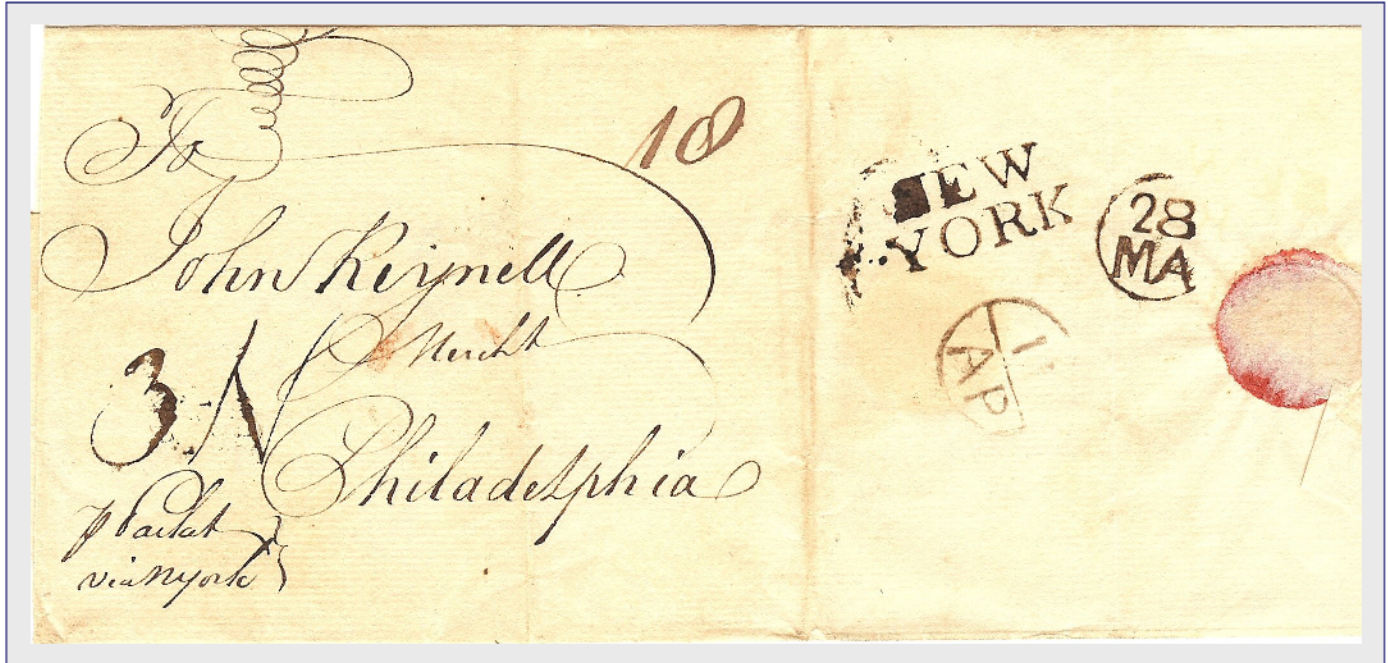 To
John Reynell
Mercht
3:N
Philadelphia
p Packet
via NYork
NEW
YORK
28
MA
AP